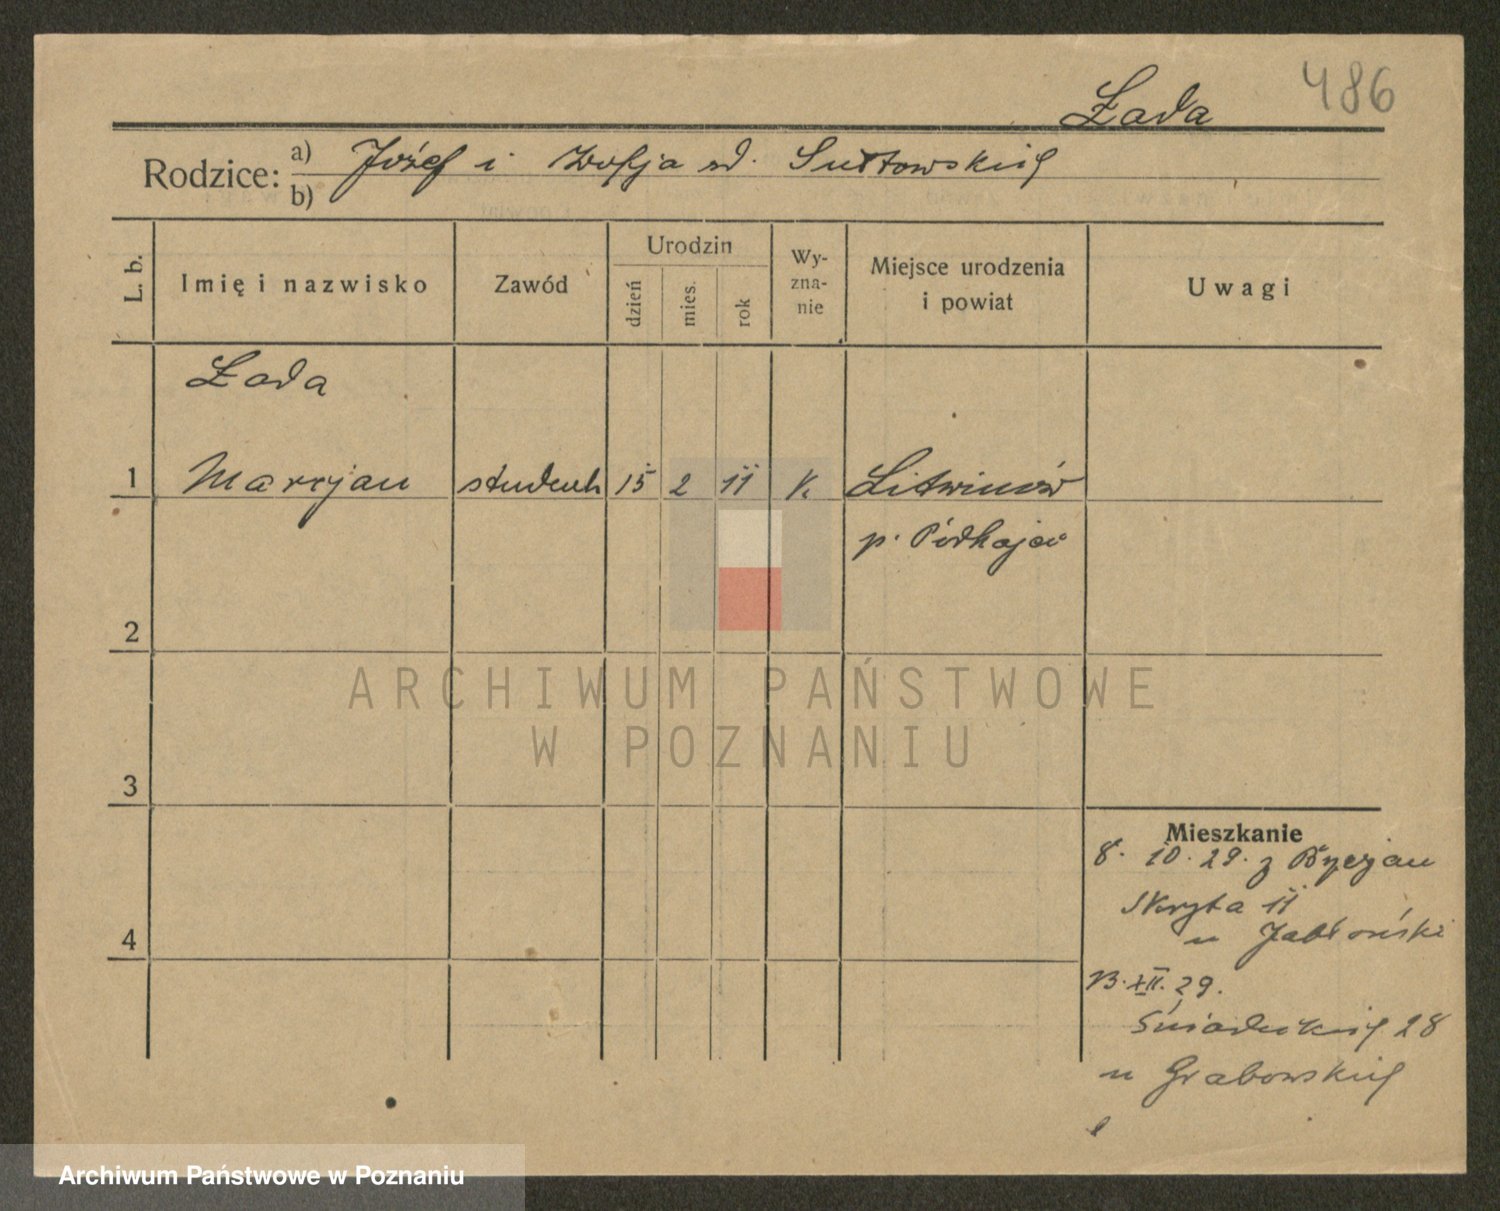 486
Łada
Rodzice: a) Józef i Zofja zd. Sułkowskich
b)
L. b. Imię i nazwisko Zawód Urodzin dzień mies. rok Wy-zna-nie Miejsce urodzenia i powiat Uwagi
Łada
1 Marcjan student 15 2 11 k. Litwinów
p. Podhajce
2
ARCHIWUM PAŃSTWOWE
W POZNANIU
3
Mieszkanie
8. 10. 29. z
Skryta 11
u Jabłoński
4
13. XII. 29.
Śniadeckich 28
u Grabowskich
Archiwum Państwowe w Poznaniu